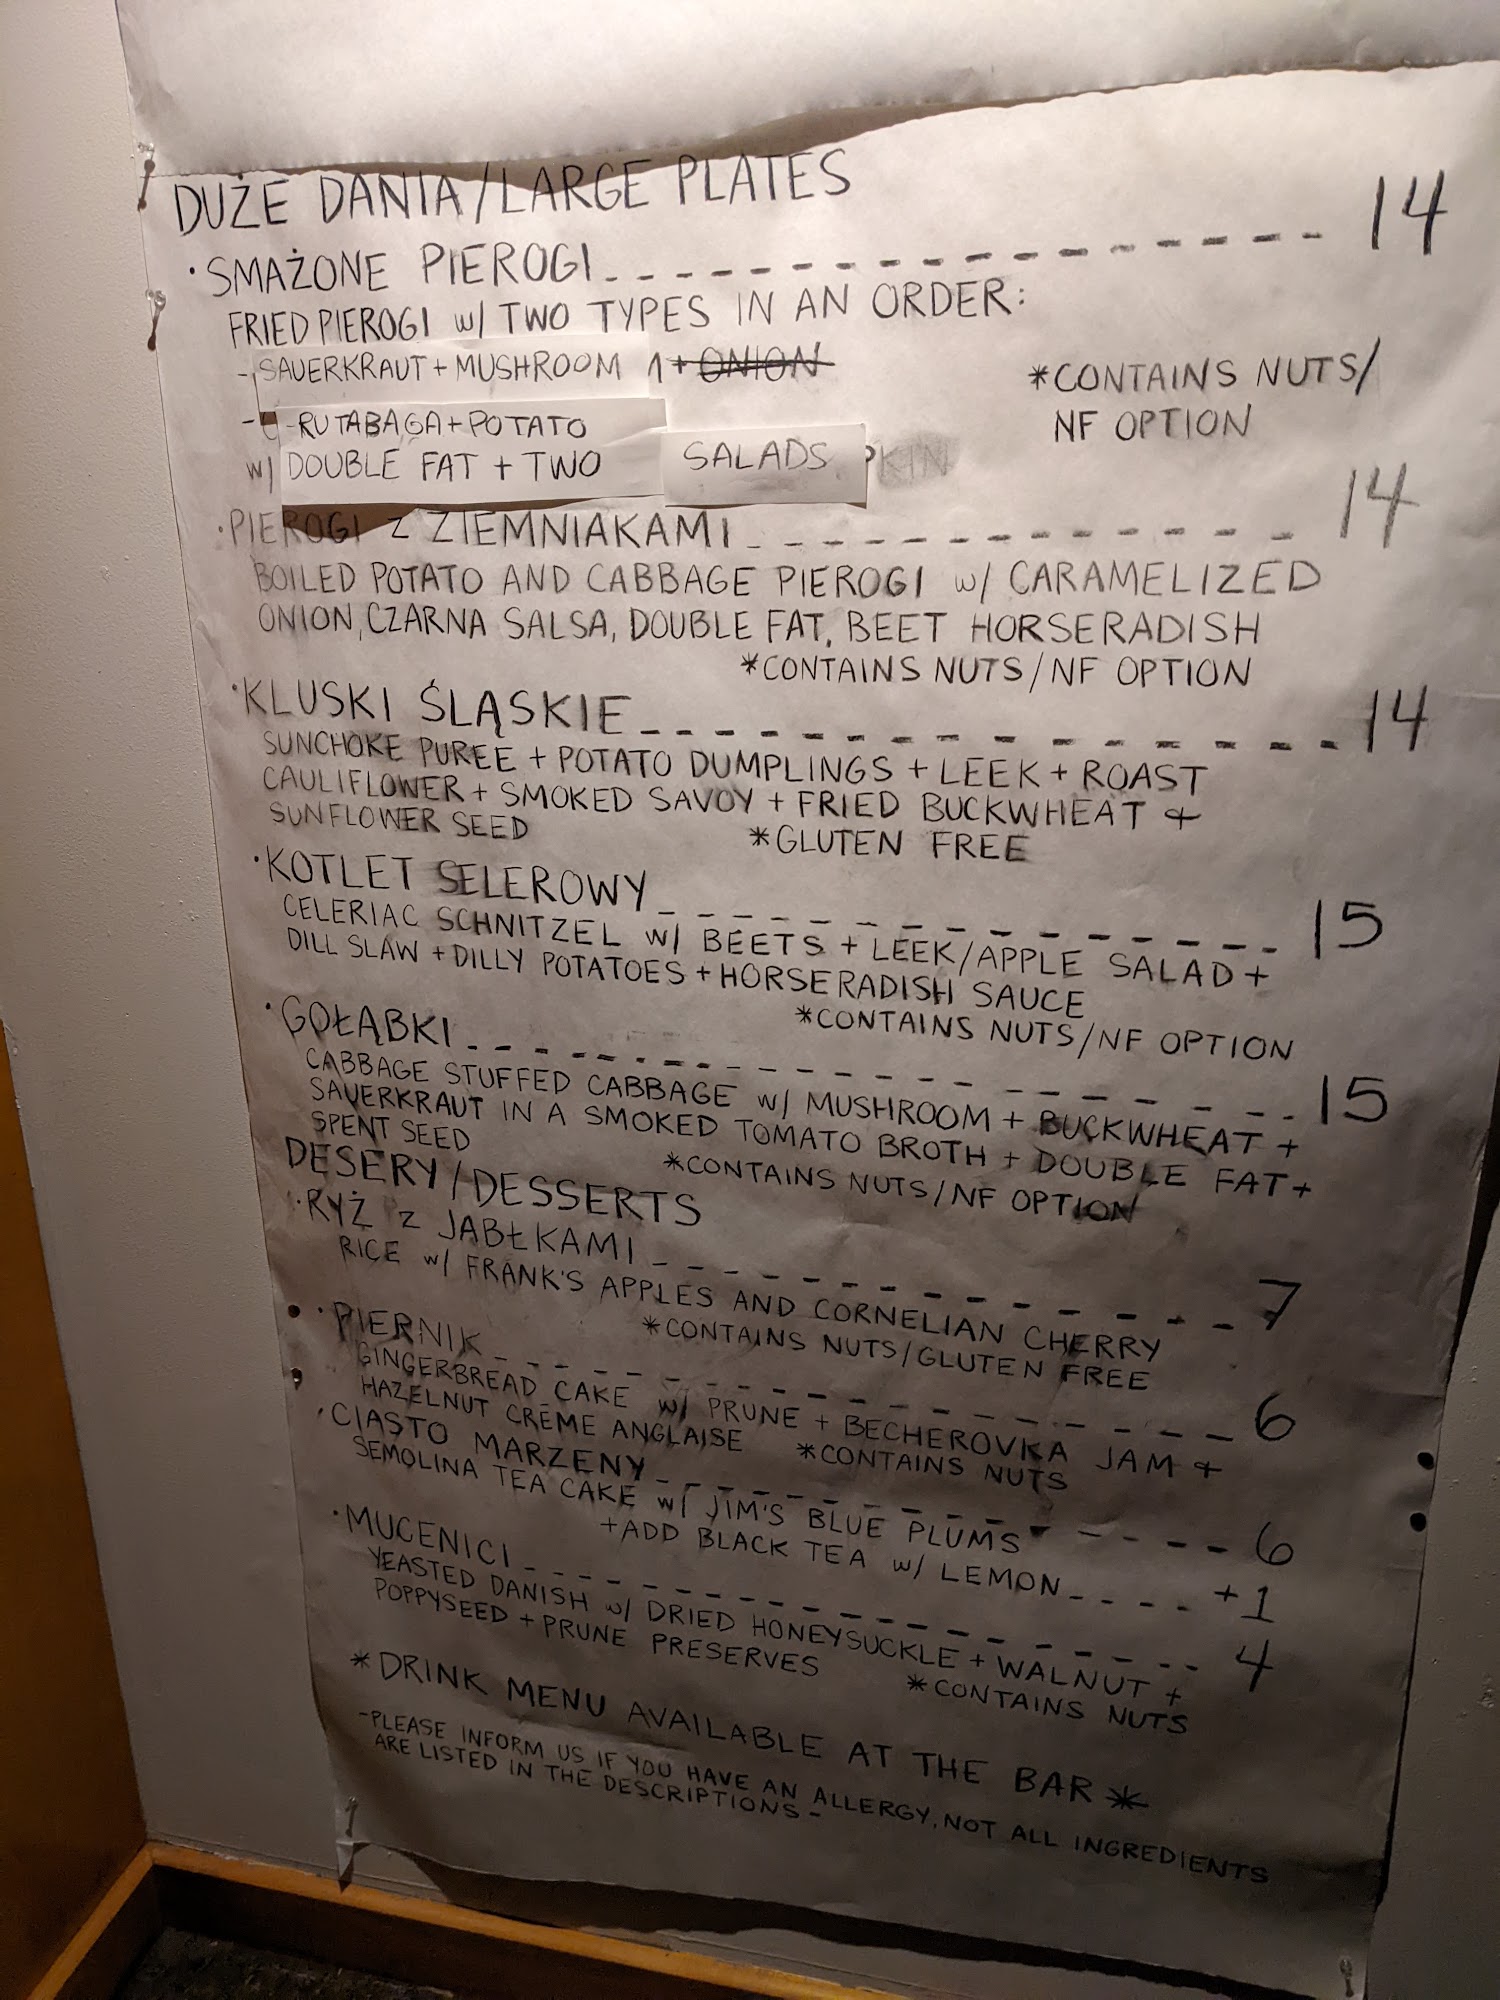 DUŻE DANIA/LARGE PLATES
·SMAŻONE PIEROGI 14
FRIED PIEROGI w/ TWO TYPES IN AN ORDER:
-SAUERKRAUT+MUSHROOM + ONION
*CONTAINS NUTS/
NF OPTION
-RUTABAGA+POTATO
w/ DOUBLE FAT + TWO SALADS
·PIEROGI Z ZIEMNIAKAMI 14
BOILED POTATO AND CABBAGE PIEROGI w/ CARAMELIZED
ONION, CZARNA SALSA, DOUBLE FAT, BEET HORSERADISH
*CONTAINS NUTS/NF OPTION
·KLUSKI ŚLĄSKIE 14
SUNCHOKE PUREE + POTATO DUMPLINGS + LEEK + ROAST
CAULIFLOWER + SMOKED SAVOY + FRIED BUCKWHEAT +
SUNFLOWER SEED *GLUTEN FREE
·KOTLET SELEROWY 15
CELERIAC SCHNITZEL w/ BEETS + LEEK/APPLE SALAD +
DILL SLAW + DILLY POTATOES + HORSERADISH SAUCE
*CONTAINS NUTS/NF OPTION
·GOŁĄBKI 15
CABBAGE STUFFED CABBAGE w/ MUSHROOM + BUCKWHEAT +
SAUERKRAUT IN A SMOKED TOMATO BROTH + DOUBLE FAT +
SPENT SEED *CONTAINS NUTS/NF OPTION
DESERY/DESSERTS
·RYŻ Z JABŁKAMI 7
RICE w/ FRANK'S APPLES AND CORNELIAN CHERRY
*CONTAINS NUTS/GLUTEN FREE
·PIERNIK 6
GINGERBREAD CAKE w/ PRUNE + BECHEROVKA JAM +
HAZELNUT CRÈME ANGLAISE *CONTAINS NUTS
·CIASTO MARZENY 6
SEMOLINA TEA CAKE w/ JIM'S BLUE PLUMS
+ADD BLACK TEA w/ LEMON +1
·MUCENICI 4
YEASTED DANISH w/ DRIED HONEYSUCKLE + WALNUT +
POPPYSEED + PRUNE PRESERVES *CONTAINS NUTS
*DRINK MENU AVAILABLE AT THE BAR*
-PLEASE INFORM US IF YOU HAVE AN ALLERGY, NOT ALL INGREDIENTS
ARE LISTED IN THE DESCRIPTIONS-